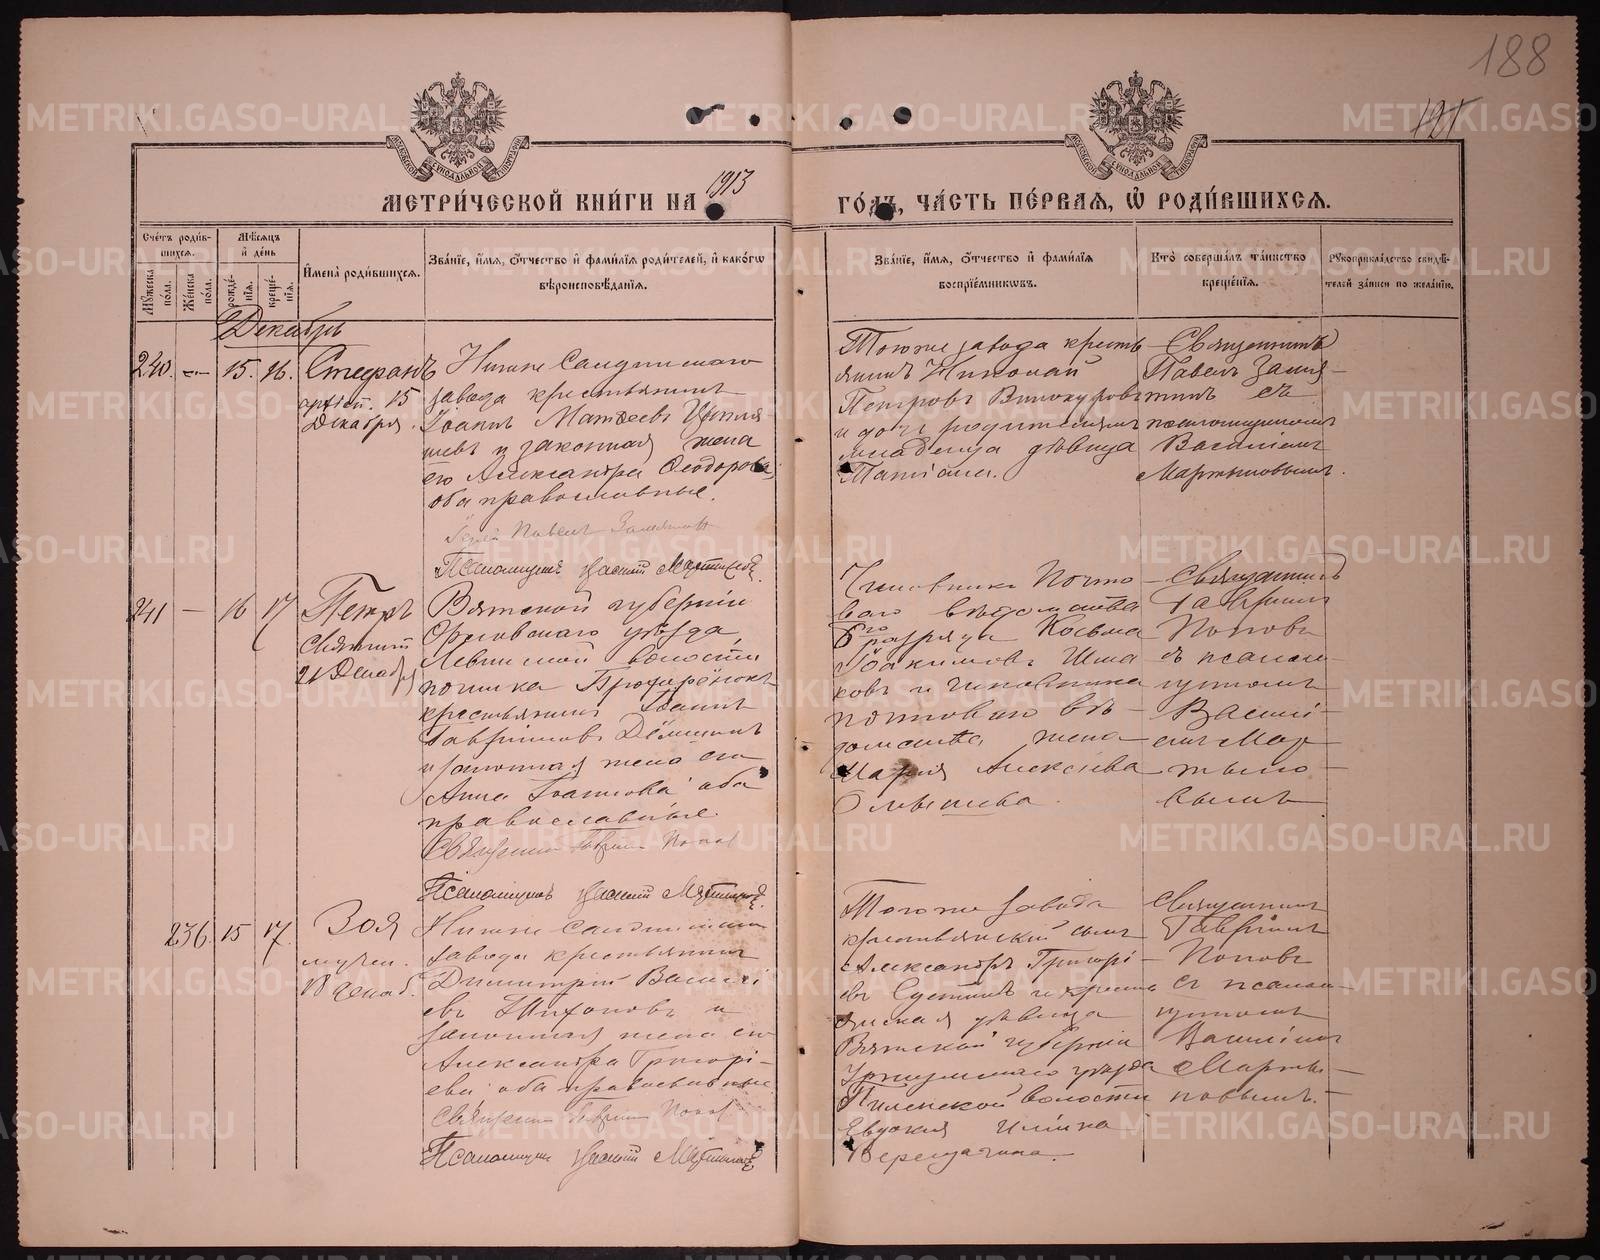 188
121
МЕТРИ́ЧЕСКОЙ КНИ́ГИ НА 1913
ГО́ДЪ, ЧА́СТЬ ПЕ́РВАЯ, Ѽ РОДИ́ВШИХСЯ.
Сче́тъ роди́в-
шихся.
Мꙋ́жеска
по́ла.
Же́нска
по́ла.
Мѣ́сяцъ
и҆ де́нь
рожде́-
нїѧ.
креще́-
нїѧ.
И҆мена̀ роди́вшихся.
Зва́нїе, и҆́мѧ, ѻ҆́тчество и҆ фами́лїѧ роди́телей, и҆ како́гѡ
вѣроисповѣ́данїѧ.
Зва́нїе, и҆́мѧ, ѻ҆́тчество и҆ фами́лїѧ
воспрїе́мниковъ.
Кто̀ соверша́лъ та́инство
креще́нїѧ.
Рꙋкоприкла́дство свидѣ́-
телей за́писи по жела́нїю.
Декабрь
240. — 15. 16. Стефанъ
15
Декабря.
Нижне Салдинскаго
завода крестьянинъ
Іоаннъ Матѳеевъ
и законная жена
его Александра Ѳеодорова
оба православные.
Іерей Павелъ Замятинъ
Псаломщикъ Василій Мартыновъ.
Тогоже завода кресть
янинъ Николай
Петровъ Винокуровъ
и дочь родителямъ
младенца дѣвица
Татіана.
Священникъ
Павелъ Замя-
тинъ съ
псаломщикомъ
Василіемъ
Мартыновымъ.
241 — 16 17 Петръ
Святит
21 Декабря
Вятской губерніи
Орловскаго уѣзда
волости
починка
крестьянинъ Іоаннъ
Гавріиловъ Дёминъ
и законная жена его
Анна Іоаннова оба
православные
Священникъ Гавріилъ Попов
Псаломщикъ Василій Мартыновъ.
Чиновникъ Почто
ваго вѣдомства
6го разряда Косьма
Іоакимовъ Шма
ковъ и чиновника
почтоваго вѣ-
домства жена
Марія Алексіева
Священникъ
Гавріилъ
Поповъ
съ псалом-
щикомъ
Васил-
емъ Мар
тыно-
вымъ
236. 15 17. Зоя
мучен.
18 декаб.
Нижне Салдинскаго
завода крестьянинъ
Димитрій Василі
евъ и
законная жена его
Александра Григорі-
ева оба православные
Священникъ Гавріилъ Попов
Псаломщикъ Василій Мартыновъ
Тогоже завода
крестьянскій сынъ
Александръ Григорі-
евъ и кресть
янская дѣвица
Вятской губерніи
Уржумскаго уѣзда
волости
Евдокія Ильина
Верещагина.
Священникъ
Гавріилъ
Поповъ
съ псалом-
щикомъ
Василіемъ
Марты-
новымъ.
METRIKI.GASO-URAL.RU